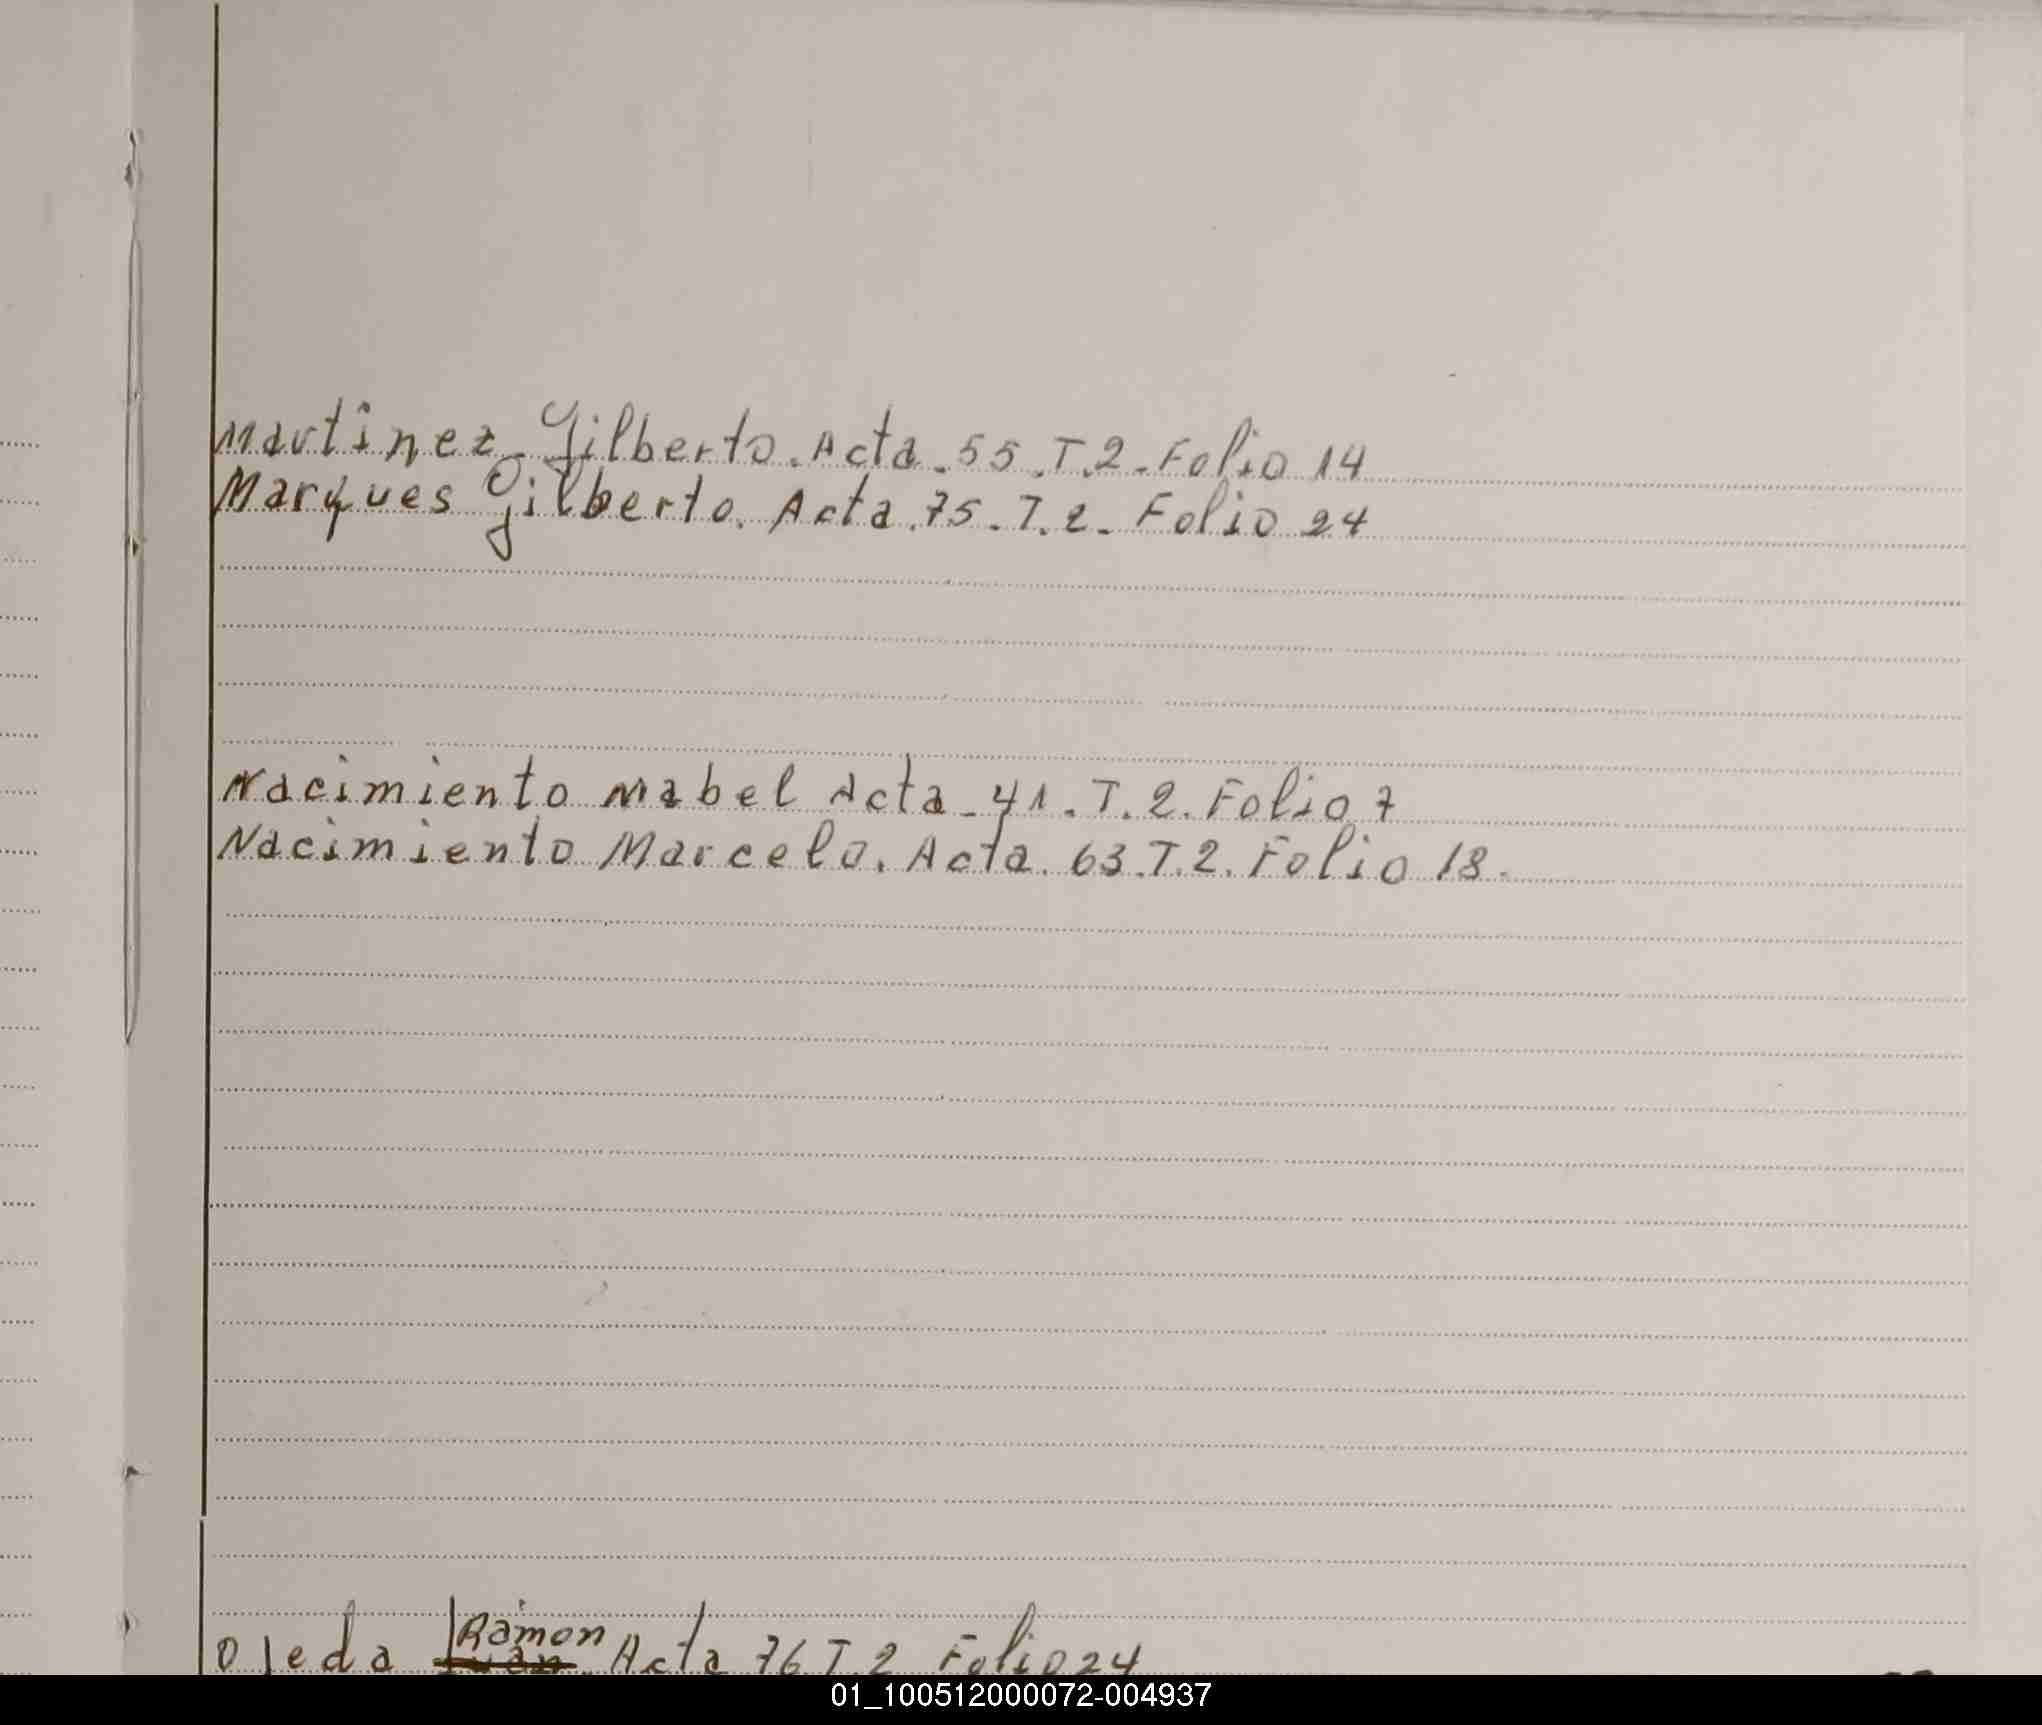 Martinez Gilberto. Acta. 55. T. 2. Folio 14
Marques Gilberto. Acta. 75. T. 2. Folio 24
Nacimiento Mabel Acta 41. T. 2. Folio 7
Nacimiento Marcelo. Acta. 63. T. 2. Folio 18.
Ramon
Ojeda Juan. Acta 76 T. 2 Folio 24
01_100512000072-004937